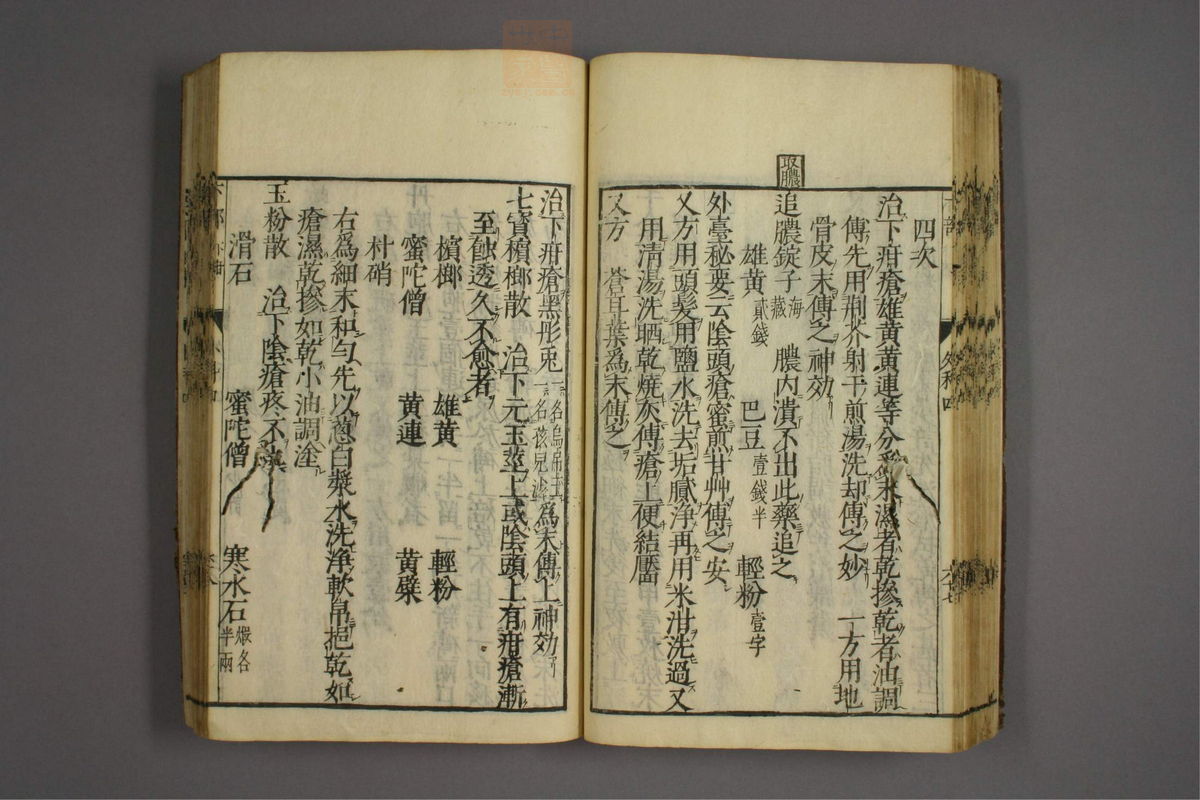 四次
治下疳瘡雄黃黃連等分爲末濕者乾摻乾者油調
傅先用荆芥射干煎湯洗却傅之妙 一方用地
骨皮末傅之神効
取膿
追膿錠子 海藏 膿內潰不出此藥追之
雄黃 貳錢 巴豆 壹錢半 輕粉 壹字
外臺秘要云陰頭瘡蜜煎甘艸傅之安
又方用頭髮用鹽水洗去垢膩淨再用米泔洗過又
用清湯洗晒乾燒灰傅瘡上便結靨
又方 蒼耳葉爲末傅之
治下疳瘡黑彤兎 一名烏吊玉 一名孩兒 爲末傅上神効
七寶檳榔散 治下元玉莖上或陰頭上有疳瘡漸
至蝕透久不愈者
檳榔 雄黃 輕粉
蜜陀僧 黃連 黃檗
朴硝
右爲細末和勻先以葱白漿水洗淨軟帛挹乾如
瘡濕乾摻如乾小油調塗
玉粉散 治下陰瘡疼不
滑石 蜜陀僧 寒水石 煅各半兩